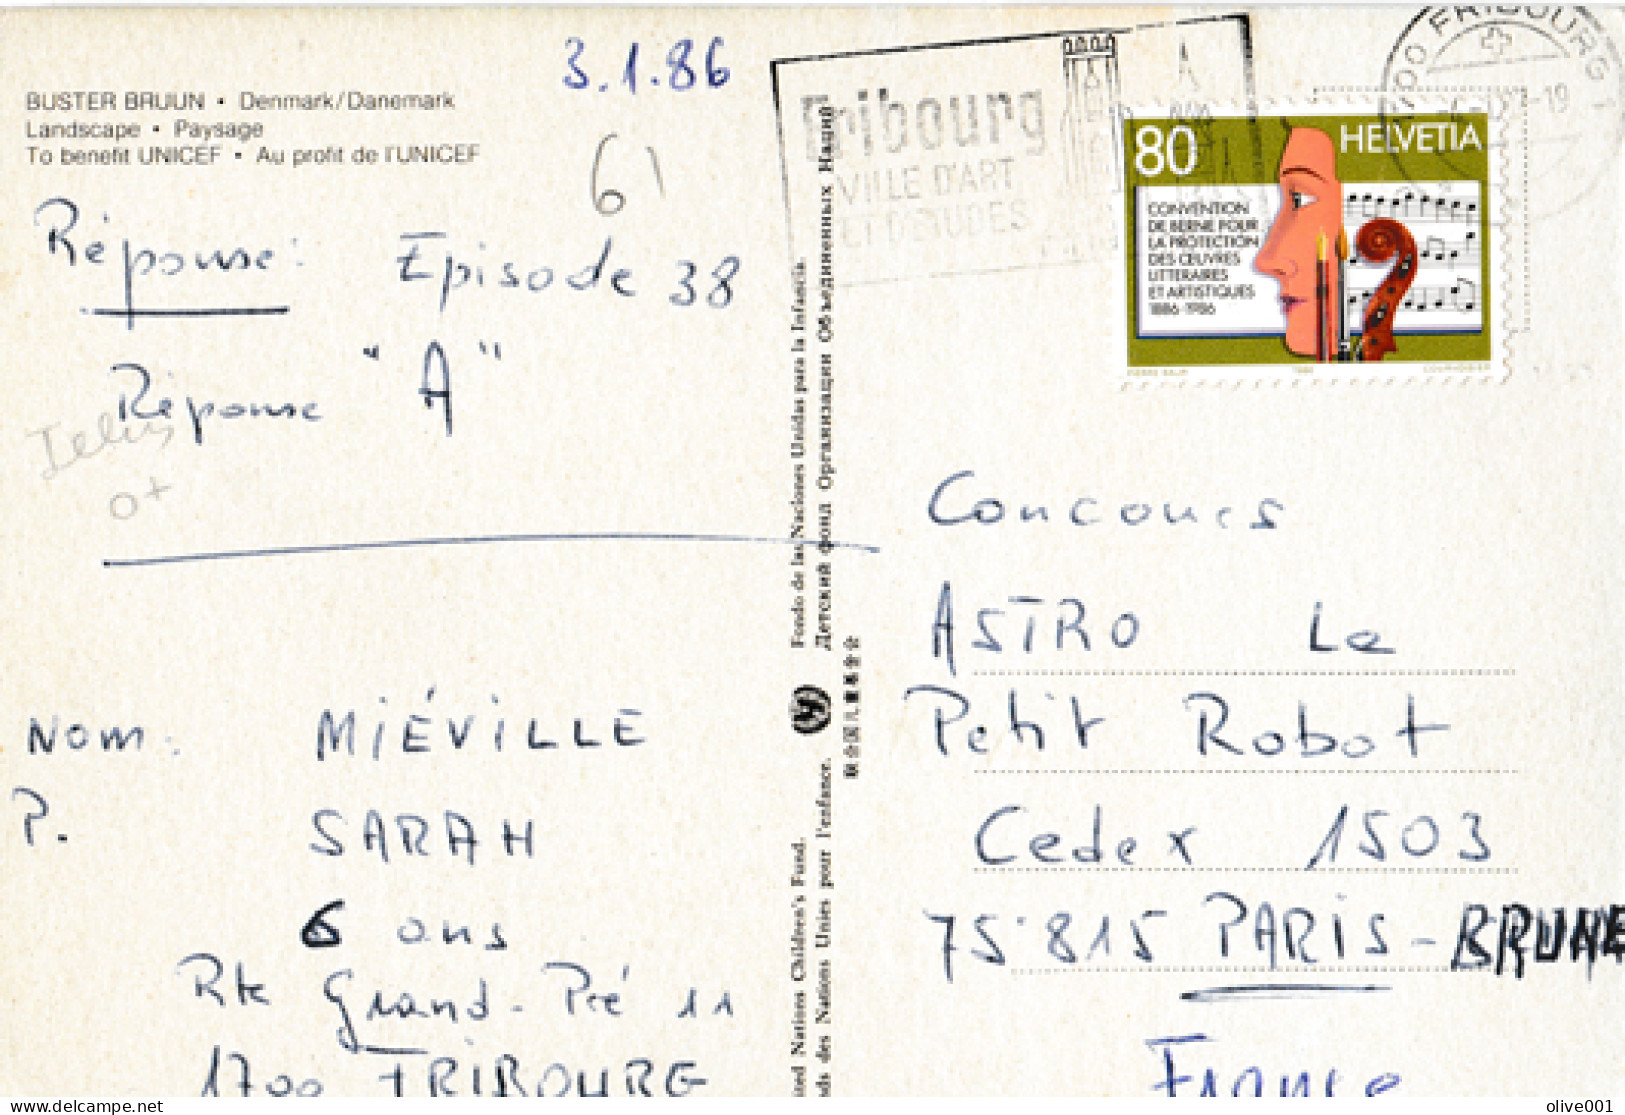 3.1.86
BUSTER BRUUN • Denmark/Danemark
Landscape • Paysage
To benefit UNICEF • Au profit de l'UNICEF
61
Réponse: Episode 38
Réponse "A"
0+
Nom: MIÉVILLE
P. SARAH
6 ans
Rte Grand-Pré 11
1700 FRIBOURG
Fondo de las Naciones Unidas para la Infancia.
Детский фонд Организации Объединенных Наций
联合国儿童基金会
ited Nations Children's Fund.
nds des Nations Unies pour l'enfance.
Fribourg
VILLE D'ART
ET D'ETUDES
1700 FRIBOURG 1
-19
80 HELVETIA
CONVENTION
DE BERNE POUR
LA PROTECTION
DES ŒUVRES
LITTERAIRES
ET ARTISTIQUES
1886-1986
1986
COURVOISIER
Concours
ASTRO Le
Petit Robot
Cedex 1503
75.815 PARIS - BRUNE
France
delcampe.net
olive001